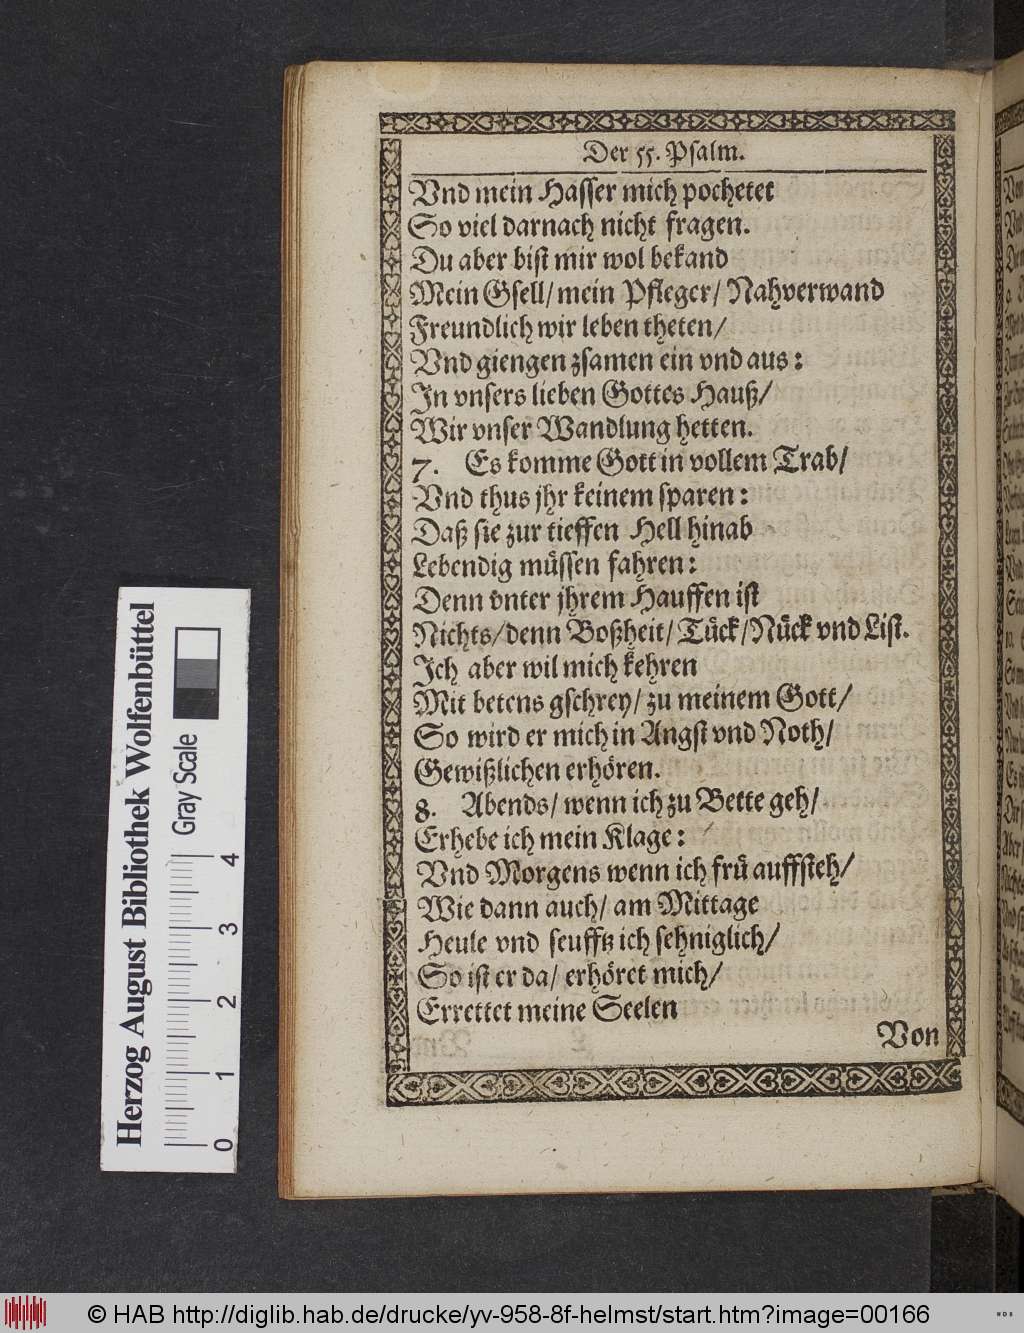 Der 55. Psalm.
Vnd mein Hasser mich pochetet
So viel darnach nicht fragen.
Du aber bist mir wol bekand
Mein Gsell/ mein Pfleger/ Nahverwand
Freundlich wir leben theten/
Vnd giengen zsamen ein vnd aus:
In vnsers lieben Gottes Hauß/
Wir vnser Wandlung hetten.
7. Es komme Gott in vollem Trab/
Vnd thus jhr keinem sparen:
Daß sie zur tieffen Hell hinab
Lebendig müssen fahren:
Denn vnter jhrem Hauffen ist
Nichts/ denn Boßheit/ Tück/ Nück vnd List.
Ich aber wil mich kehren
Mit betens gschrey/ zu meinem Gott/
So wird er mich in Angst vnd Noth/
Gewißlichen erhören.
8. Abends/ wenn ich zu Bette geh/
Erhebe ich mein Klage:
Vnd Morgens wenn ich frü auffsteh/
Wie dann auch/ am Mittage
Heule vnd seufftz ich sehniglich/
So ist er da/ erhöret mich/
Errettet meine Seelen
Von
Herzog August Bibliothek Wolfenbüttel
Gray Scale
0 1 2 3 4
© HAB http://diglib.hab.de/drucke/yv-958-8f-helmst/start.htm?image=00166